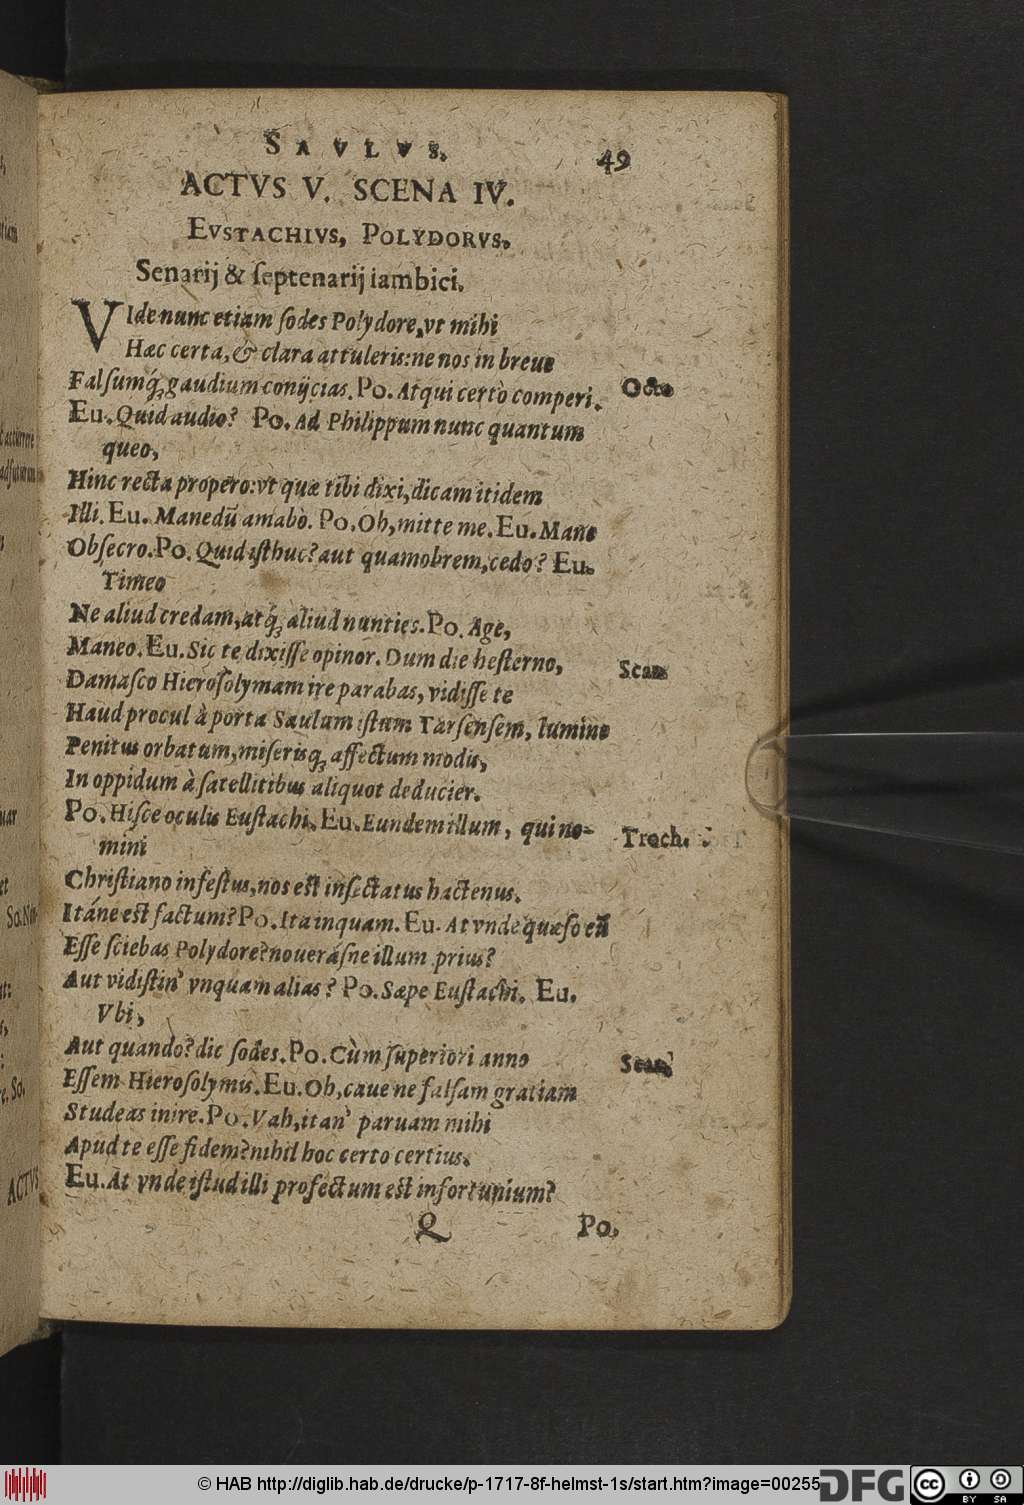 SAVLVS. 49
ACTVS V. SCENA IV.
EVSTACHIVS, POLYDORVS.
Senarij & ſeptenarij iambici.
VIde nunc etiam ſodes Polydore, vt mihi
Hæc certa, & clara attuleris: ne nos in breue
Falſumq́; gaudium conijcias. Po. Atqui certò comperi. Octo
Eu. Quid audio? Po. Ad Philippum nunc quantum
queo,
Hinc recta propero: vt quæ tibi dixi, dicam itidem
Illi. Eu. Manedū amabò. Po. Oh, mitte me. Eu. Mane
Obſecro. Po. Quid iſthuc? aut quamobrem, cedo? Eu.
Timeo
Ne aliud credam, atq́; aliud nunties. Po. Age,
Maneo. Eu. Sic te dixiſſe opinor. Dum die heſterno, Scan
Damaſco Hieroſolymam ire parabas, vidiſſe te
Haud procul à porta Saulum iſtum Tarſenſem, lumine
Penitus orbatum, miſerisq; affectum modis,
In oppidum à ſatellitibus aliquot deducier.
Po. Hiſce oculis Euſtachi. Eu. Eundem illum, qui no- Troch.
mini
Chriſtiano infeſtus, nos eſt inſectatus hactenus.
Itáne eſt factum? Po. Ita inquam. Eu. At vnde quæſo eū
Eſſe ſciebas Polydore? nouerásne illum prius?
Aut vidiſtin' vnquam alias? Po. Sæpe Euſtachi. Eu.
Vbi,
Aut quando? dic ſodes. Po. Cùm ſuperiori anno Scan.
Eſſem Hieroſolymis. Eu. Oh, caue ne falſam gratiam
Studeas inire. Po. Vah, itan' paruam mihi
Apud te eſſe fidem? nihil hoc certo certius.
Eu. At vnde iſtud illi profectum eſt infortunium?
Q Po.
ACTVS
© HAB http://diglib.hab.de/drucke/p-1717-8f-helmst-1s/start.htm?image=00255
DFG
cc BY SA